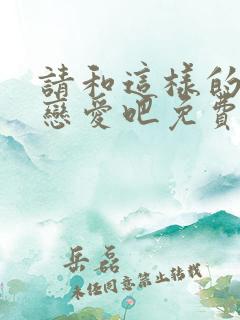 請和這樣的
戀愛吧免費
岳磊
未經同意禁止轉載